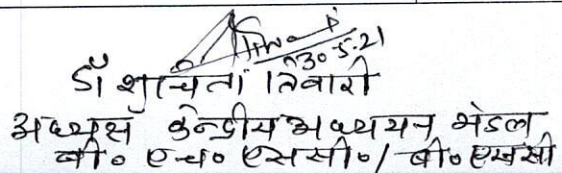 30-5-21
डॉ शुचिता तिवारी
अध्यक्ष केन्द्रीय अध्ययन मंडल
बी० एच० एससी० / बी० एससी